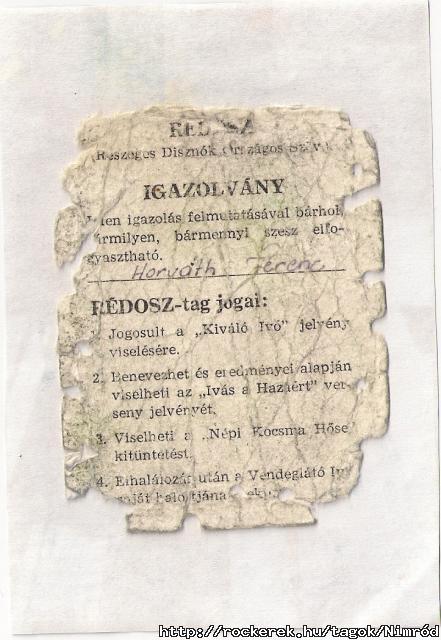 (Részeges Disznók Országos
IGAZOLVÁNY
igazolás felmutatásával bárhol,
bármennyi szesz elfo-
gyasztható.
Horváth Ferenc
RÉDOSZ-tag jogai:
1. Jogosult a „Kiváló Ivó” jelvény
viselésére.
2. Benevezhet és eredményei alapján
viselheti az „Ivás a Hazáért” ver-
seny jelvényét.
3. Viselheti a „Népi Kocsma Hőse
kitüntetést.
4. Elhalálozás után a Vendéglátó
http://rockerek.hu/tagok/Nimród